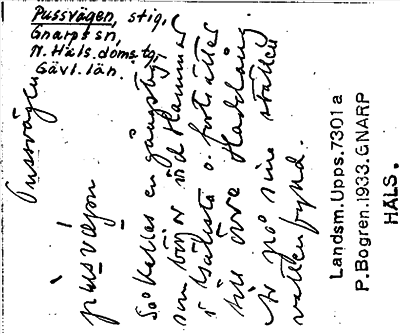 Pussvägen, stig.
Gnarps sn,
N. Häls. doms.to
Gävl. län.
Pussvägen
pusvägen
Så kallas en gångstig,
som börjar vid Hammar
i Gällsta o. fortsätter
till övre
är på sina ställen
vattenfylld.
Landsm.Upps.7301a
P.Bogren.1933.GNARP
HÄLS.